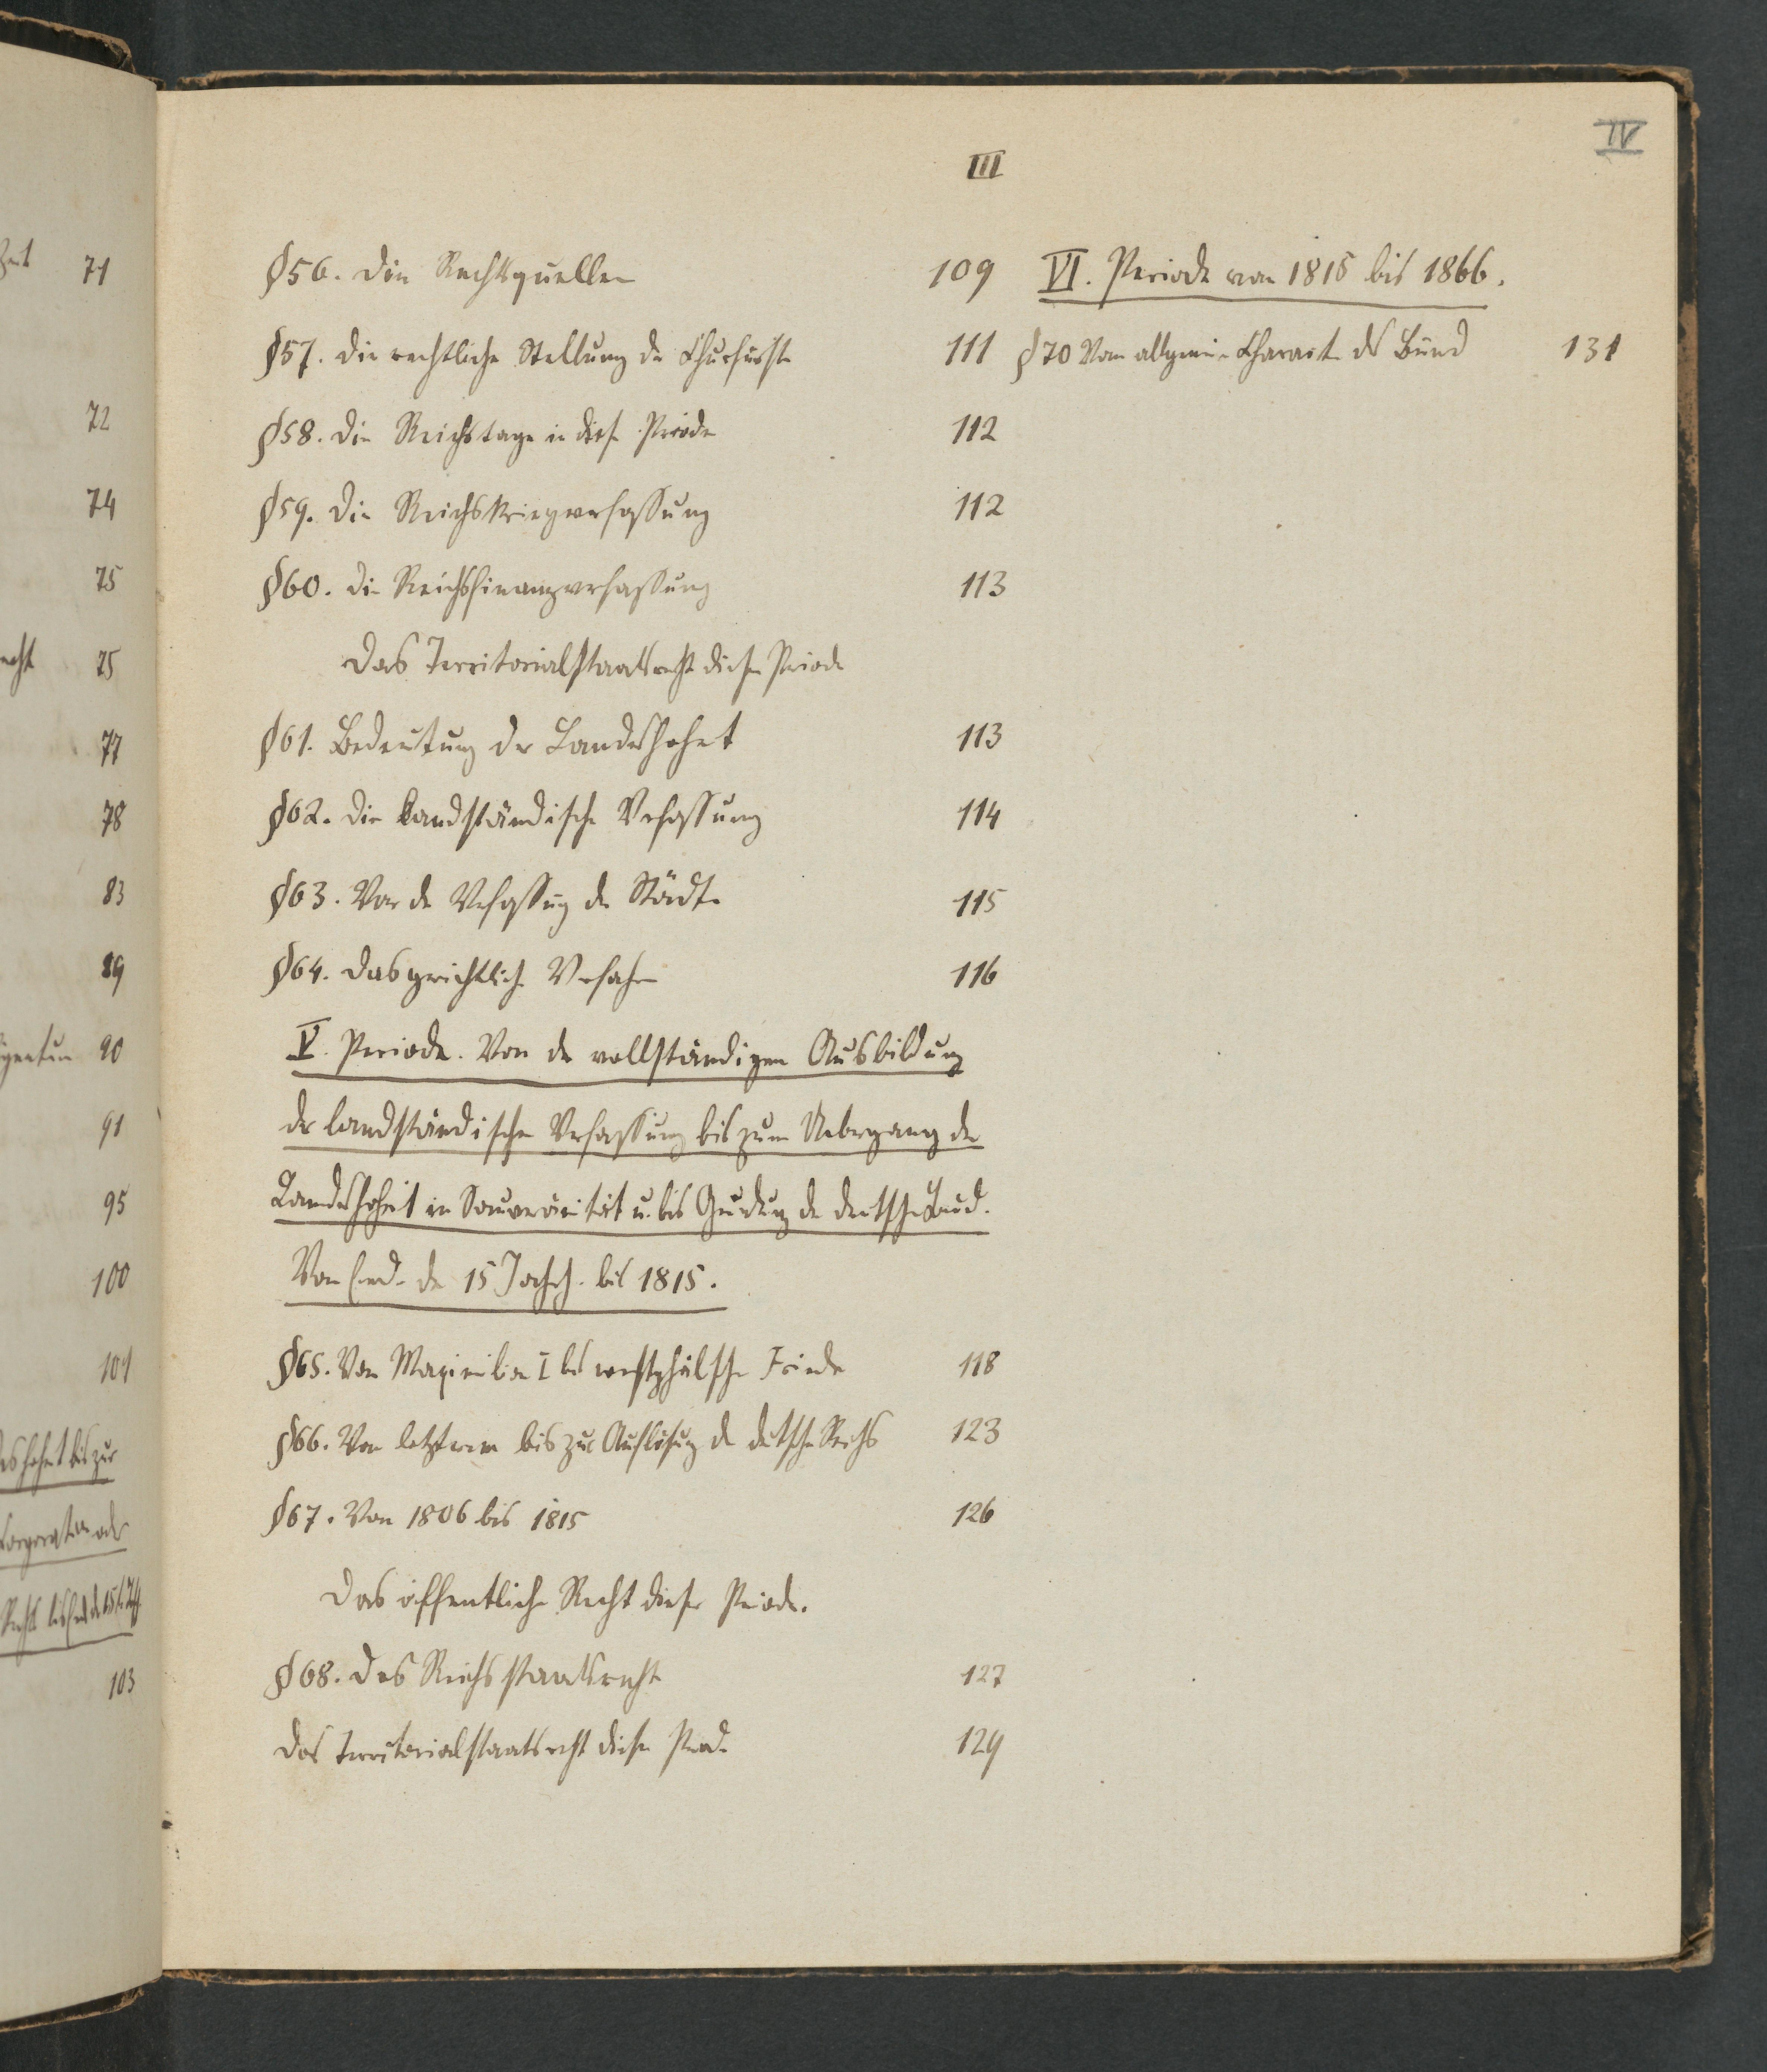 IV
III
§56. Die Rechtsquellen 109
§57. Die rechtliche Stellung der Churfürsten 111
§58. Die Reichstage in dieser Periode 112
§59. Die Reichskriegverfassung 112
§60. Die Reichsfinanzverfassung 113
Das Territorialstaatsrecht dieser Periode
§61. Bedeutung der Landeshoheit 113
§62. Die landständische Verfassung 114
§63. Von der Verfassung der Städte 115
§64. Das gerichtliche Verfahren 116
V. Periode. Von der vollständigen Ausbildung
der landständischen Verfassung bis zum Uebergang der
Landeshoheit in Souveränität u. bis Gründung des deutschen Bund.
Von Ende des 15 Jahrh. bis 1815.
§65. Von Maximilian I bis westphälsche Friede 118
§66. Von letzterem bis zur Auflösung des deutschen Reichs 123
§67. Von 1806 bis 1815 126
Das öffentliche Recht dieser Periode.
§68. Das Reichsstaatsrecht 127
Das Territorialstaatsrecht dieser Periode 129
VI. Periode von 1815 bis 1866.
§70 Vom allgemeinen Charakter des Bund 131
71
72
74
75
75
77
78
83
89
90
91
95
100
101
bis zur
103